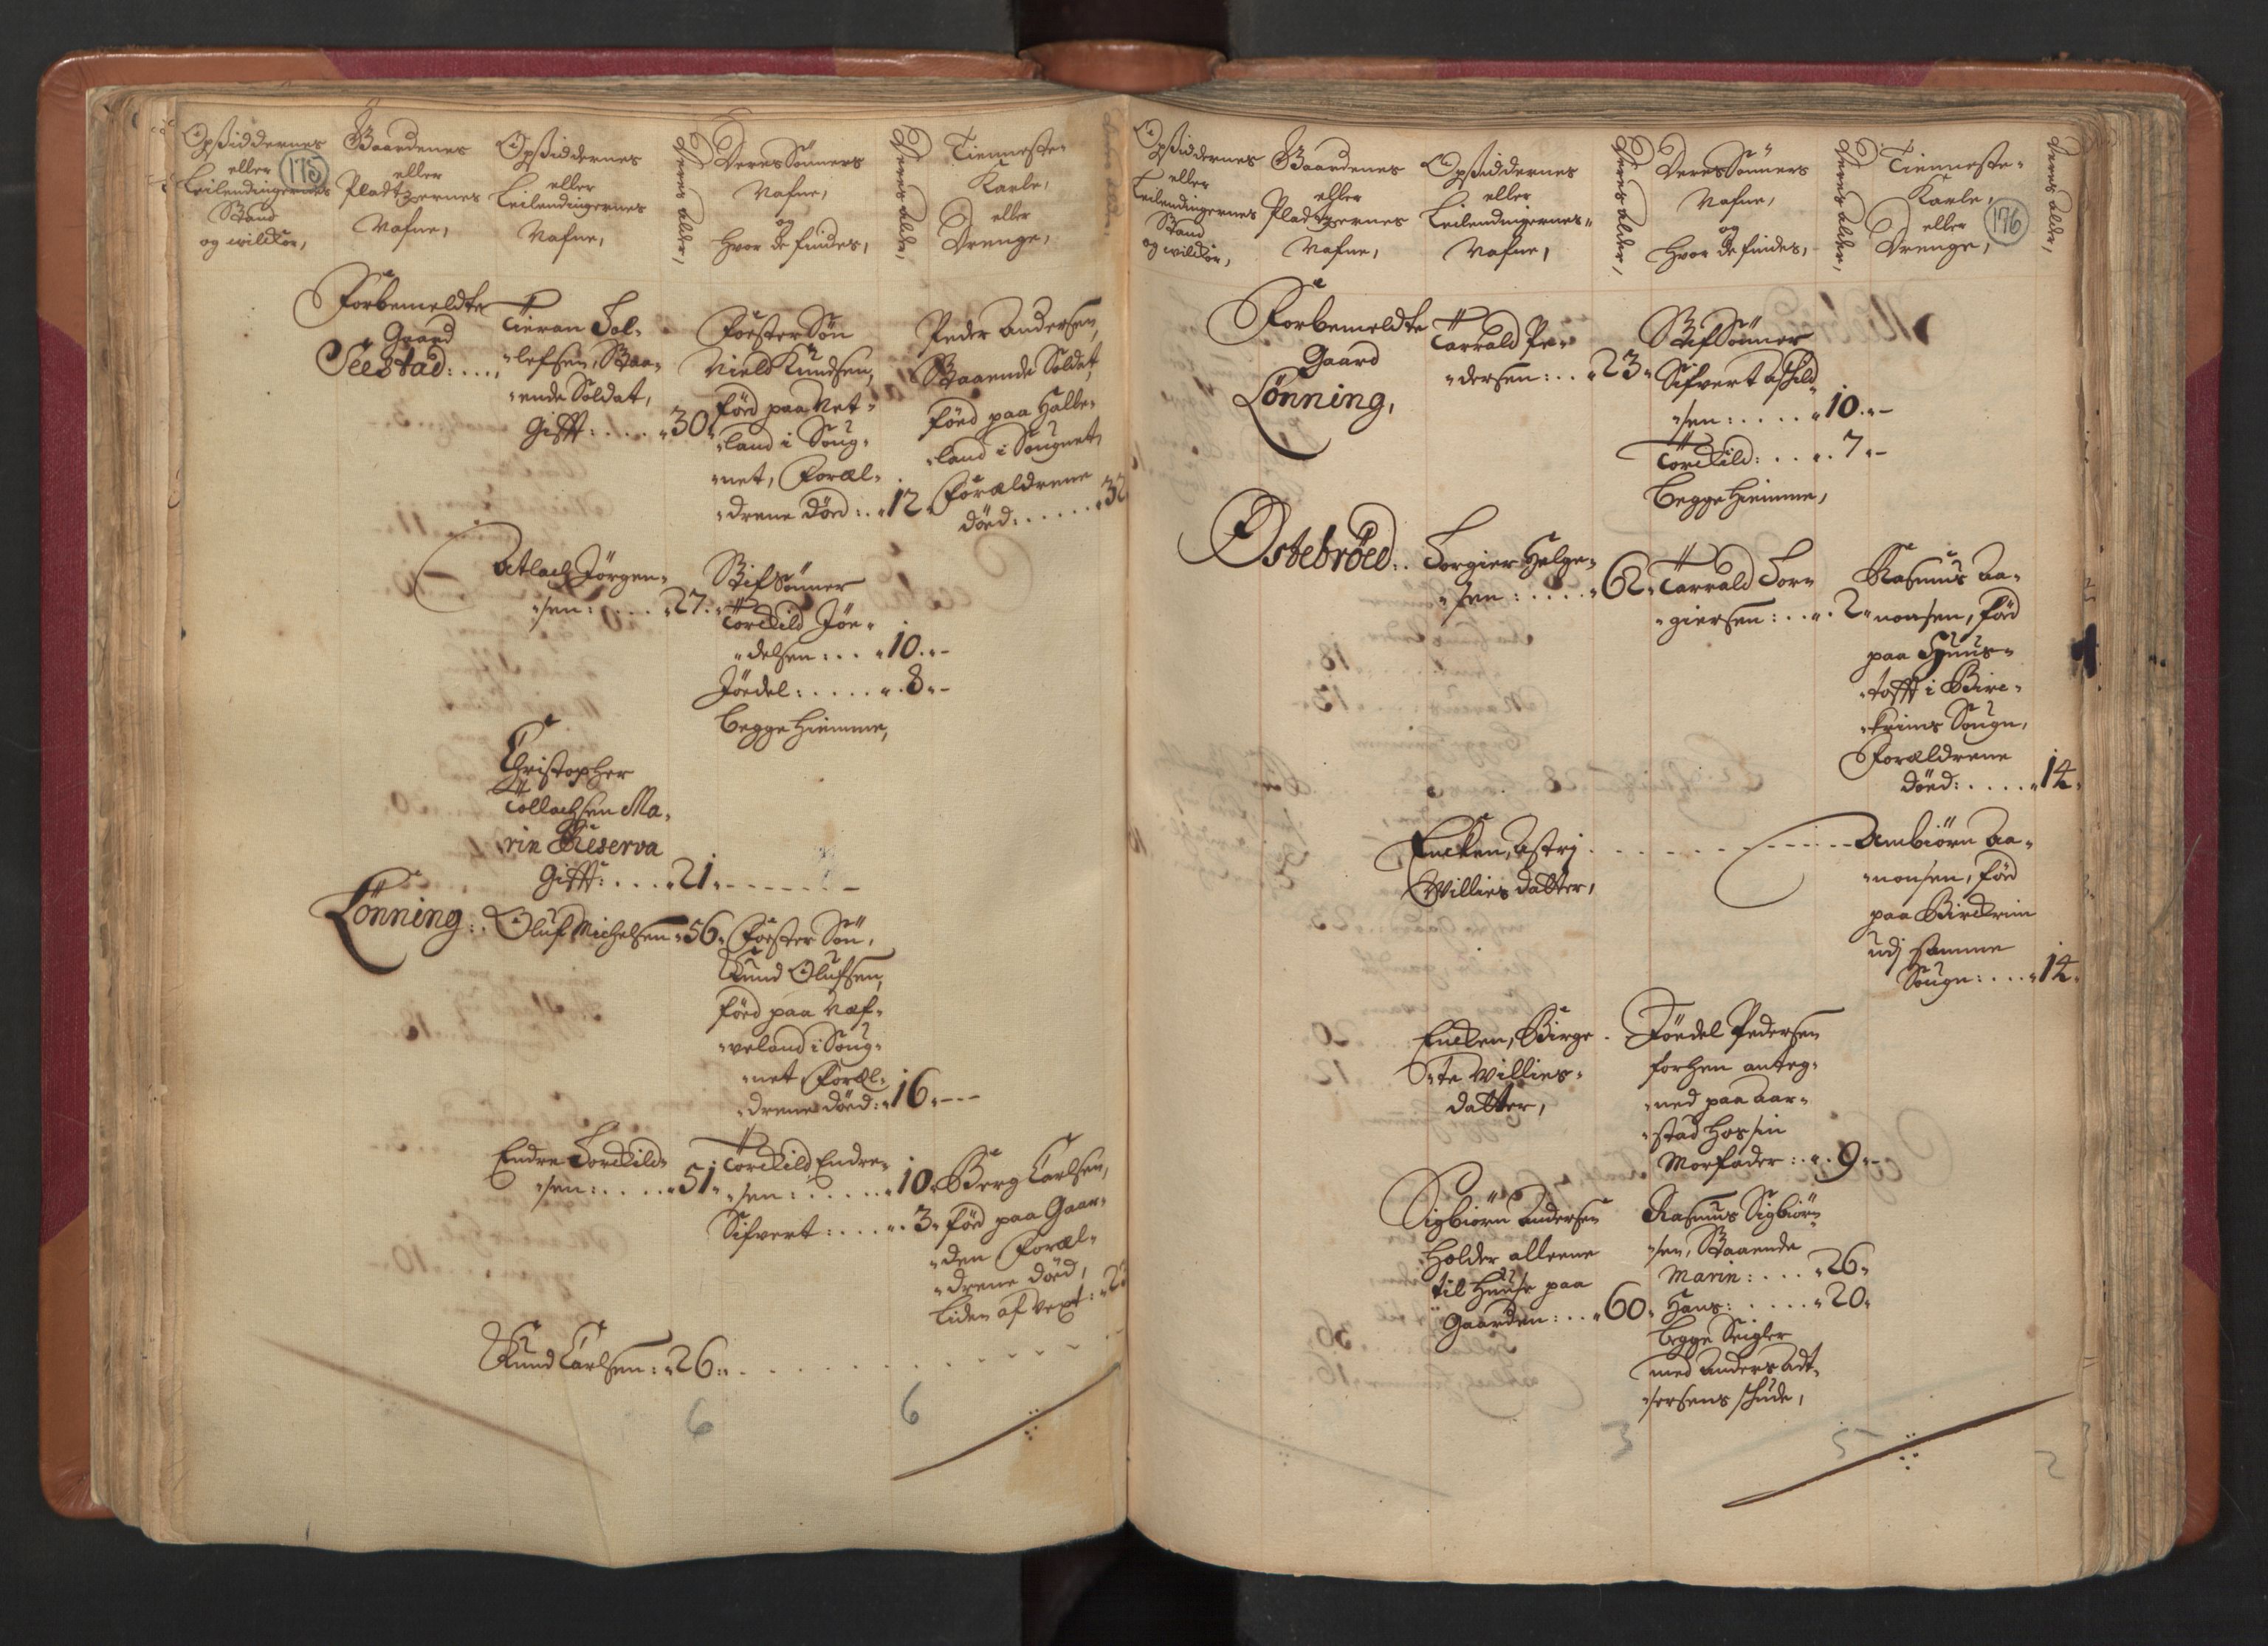 Opsiddernes
eller
Leilendingernes
Stand
og vilckor,
175
Gaardenes
eller
Pladtzernes
Nafne,
Opsiddernes
eller
Leilendingernes
Nafne,
Deres alder,
Deres Sönners
Nafne,
og
hvor de findes,
Deres alder,
Tienneste-
Karle,
eller
Drenge,
Forbemeldte
Gaard
Sæstad: ....
Tieran Tol-
lefsen, Staa-
ende Soldat,
Gifft: .... 30.
Foster Sön
Nield Knudsen,
föed paa Net-
land i Soug-
net, Foræl-
drene död: . 12.
Peder Andersen,
Staaende Soldat,
föed paa Halle-
land i Sougnet,
Forældrene
död: ..... 32
Atlach Jörgen-
sen: ..... 27.
Stif Sönner
Torckild Jöe-
delsen: .. 10.-
Jöedel: ..... 8.-
begge hiemme,
Christopher
Tollachsen Ma-
rin Reserva
Gifft: .... 21.
Lönning: . Oluf Michelsen 56.
Foster Sön,
Knud Olufsen,
föed paa Næf-
veland i Soug-
net, Foræl-
drene döed: 16.
Endre Torckild-
sen: ..... 51.
Torckild Endre-
sen: ..... 10.
Sifvert: .... 3.
Berg Carlsen,
föed paa Gaar-
den, Foræl-
drene död,
liden af vext: 2
Knud Carlsen: 26.
6
6
Opsiddernes
eller
Leilendingernes
Stand
og vilckor,
Gaardenes
eller
Pladtzernes
Nafne,
Opsiddernes
eller
Leilendingernes
Nafne,
Deres alder,
Deres Sönners
Nafne,
og
hvor de findes,
Deres alder,
Tienneste-
Karle,
eller
Drenge,
176
Deres alder,
Forbemeldte
Gaard
Lönning,
Tarrald Pe-
dersen: .. 23.
Stif Sönner
Sifvert Askild-
sen: .... 10.-
Torckild: .... 7.-
begge hiemme,
Östebröed: .
Torgier Helge-
sen: .... 62.
Tarrald Tor-
giersen: ... 2.
Rasmus Aa-
nonsen, föed
paa
tofft i Birc-
krims Sougn,
Forældrene
döed: .... 14.
Encken, Astrj
Willies datter,
Ambiörn Aa-
nonsen, föed
paa Birckrim
udj samme
Sougn: ... 14.
Encken, Birge-
te Willies-
datter,
Jöedel Pedersen
forhen anteg-
ned paa Aar-
stad hos sin
Morfader: . 9.-
Sigbiörn Andersen
holder alleene
til Huuse paa
Gaarden: .. 60.
Rasmus Sigbiörn-
sen, Staaende
Marin: ... 26.
Hans: .... 20.
begge Seigler
med Anders Adt-
sersens skude,
3
5
2